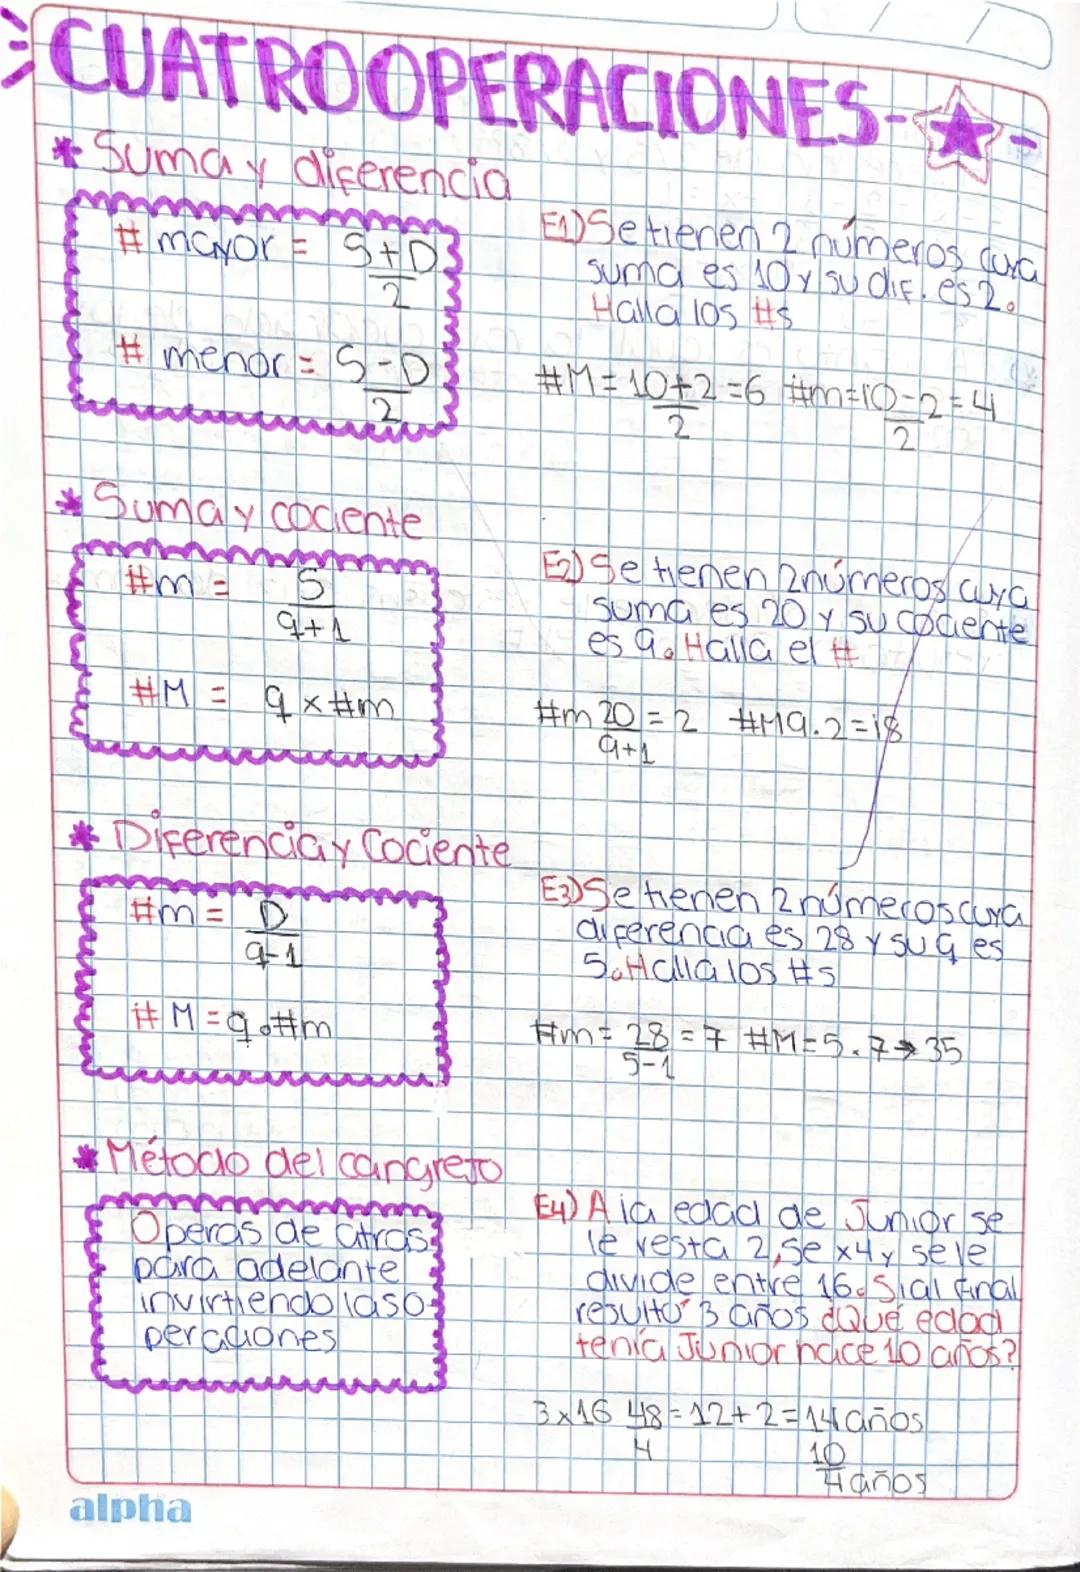 CUATROOPERACIONES-★-
* Suma y diferencia
# mayor = S+D
2
# menor = S-D
2
E1) Se tienen 2 números cuya
suma es 10 y su dif. es 2.
Halla los #s
#M = 10+2 = 6 #m = 10-2 = 4
2 2
* Suma y cociente
#m = S
q+1
#M = q x #m
E2) Se tienen 2 números cuya
suma es 20 y su cociente
es 9. Halla el #
#m 20 = 2 #M 9.2 = 18
9+1
* Diferencia y Cociente
#m = D
q-1
# M = q . #m
E3) Se tienen 2 números cuya
diferencia es 28 y su q es
5. Halla los #s
#m = 28 = 7 #M = 5.7 → 35
5-1
* Método del cangrejo
Operas de atras
para adelante
invirtiendo laso
peraciones
E4) A la edad de Junior se
le resta 2, se x4 y se le
divide entre 16. Si al final
resultó 3 años ¿Qué edad
tenía Junior hace 10 años?
3 x 16 48 = 12 + 2 = 14 años
4 10
4 años
alpha